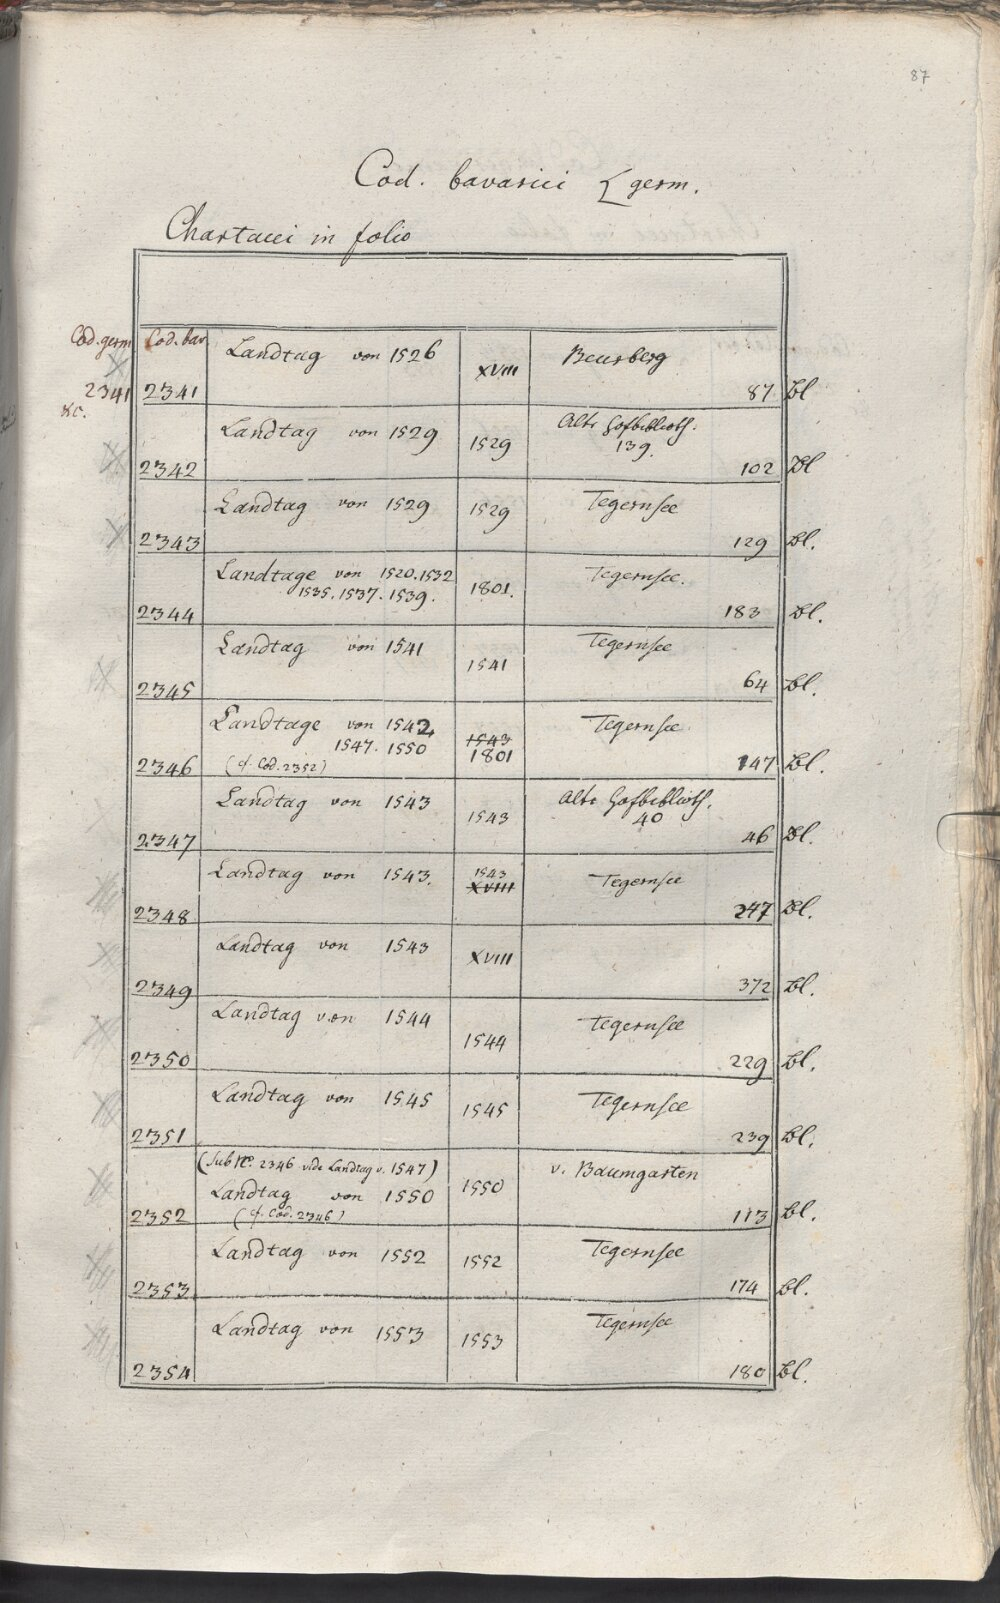 87
Cod. bavarici [germ.
Chartacei in folio
Cod. germ
2341
&c.
Cod. bav
2341 Landtag von 1526 XVIII Beurberg 87 Bl
2342 Landtag von 1529 1529 Alte Hofbiblioth. 139. 102 Bl
2343 Landtag von 1529 1529 Tegernsee 129 Bl.
2344 Landtage von 1520. 1532
1535. 1537. 1539. 1801. Tegernsee. 183 Bl.
2345 Landtag von 1541 1541 Tegernsee 64 Bl.
2346 Landtage von 1542
1547. 1550
(cf. Cod. 2352) 1543 1801 Tegernsee 147 Bl.
2347 Landtag von 1543 1543 Alte Hofbiblioth. 40 46 Bl.
2348 Landtag von 1543. 1543 XVIII Tegernsee 247 Bl.
2349 Landtag von 1543 XVIII 372 Bl.
2350 Landtag von 1544 1544 Tegernsee 229 Bl.
2351 Landtag von 1545 1545 Tegernsee 239 Bl.
(sub No. 2346 vide Landtag v. 1547)
2352 Landtag von 1550
(cf. Cod. 2346) 1550 v. Baumgarten 113 Bl.
2353 Landtag von 1552 1552 Tegernsee 174 Bl.
2354 Landtag von 1553 1553 Tegernsee 180 Bl.